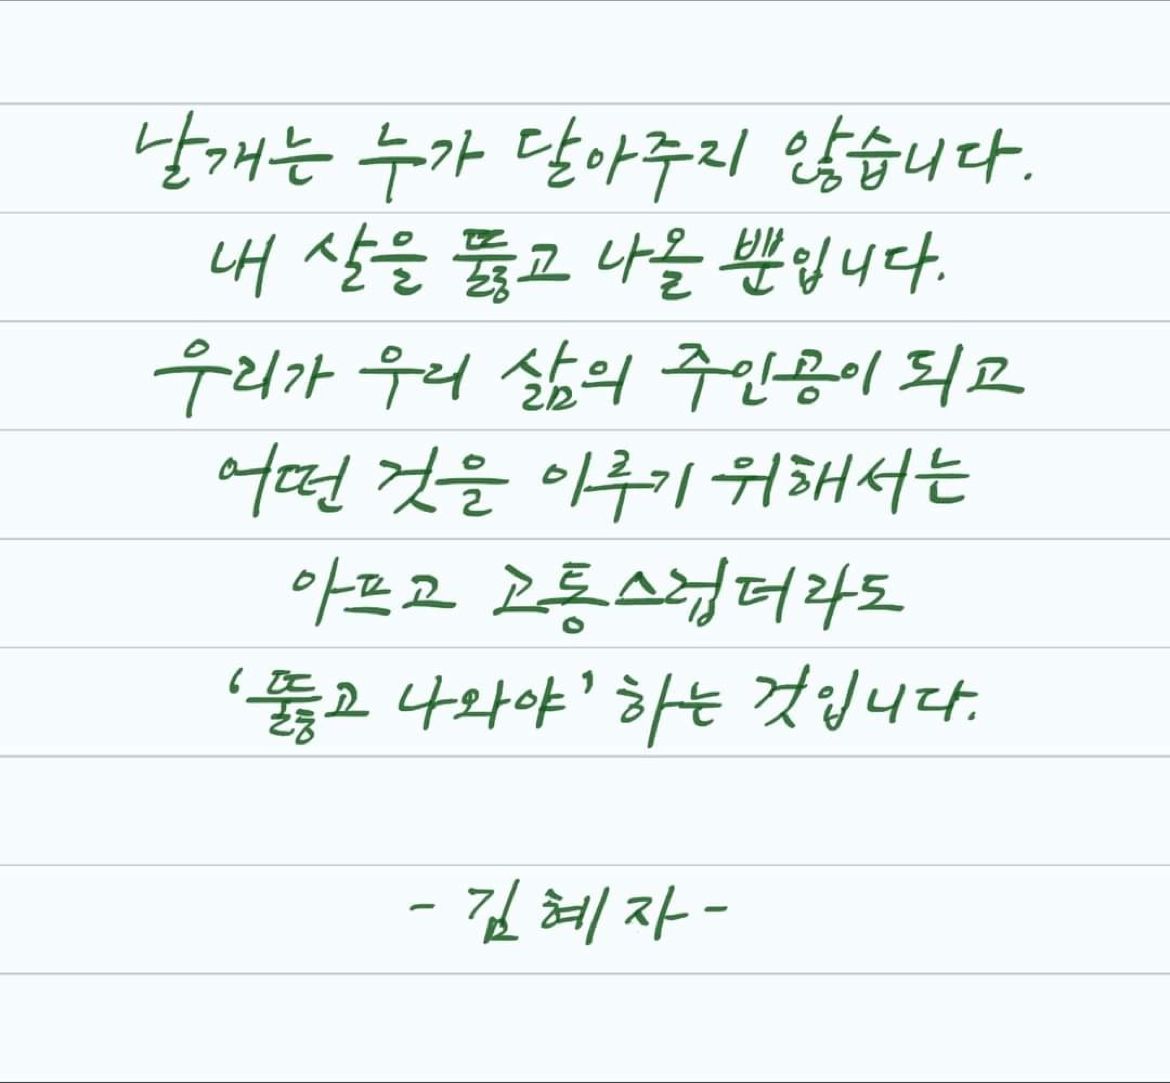 날개는 누가 달아주지 않습니다.
내 살을 뚫고 나올 뿐입니다.
우리가 우리 삶의 주인공이 되고
어떤 것을 이루기 위해서는
아프고 고통스럽더라도
'뚫고 나와야' 하는 것입니다.
- 김혜자 -